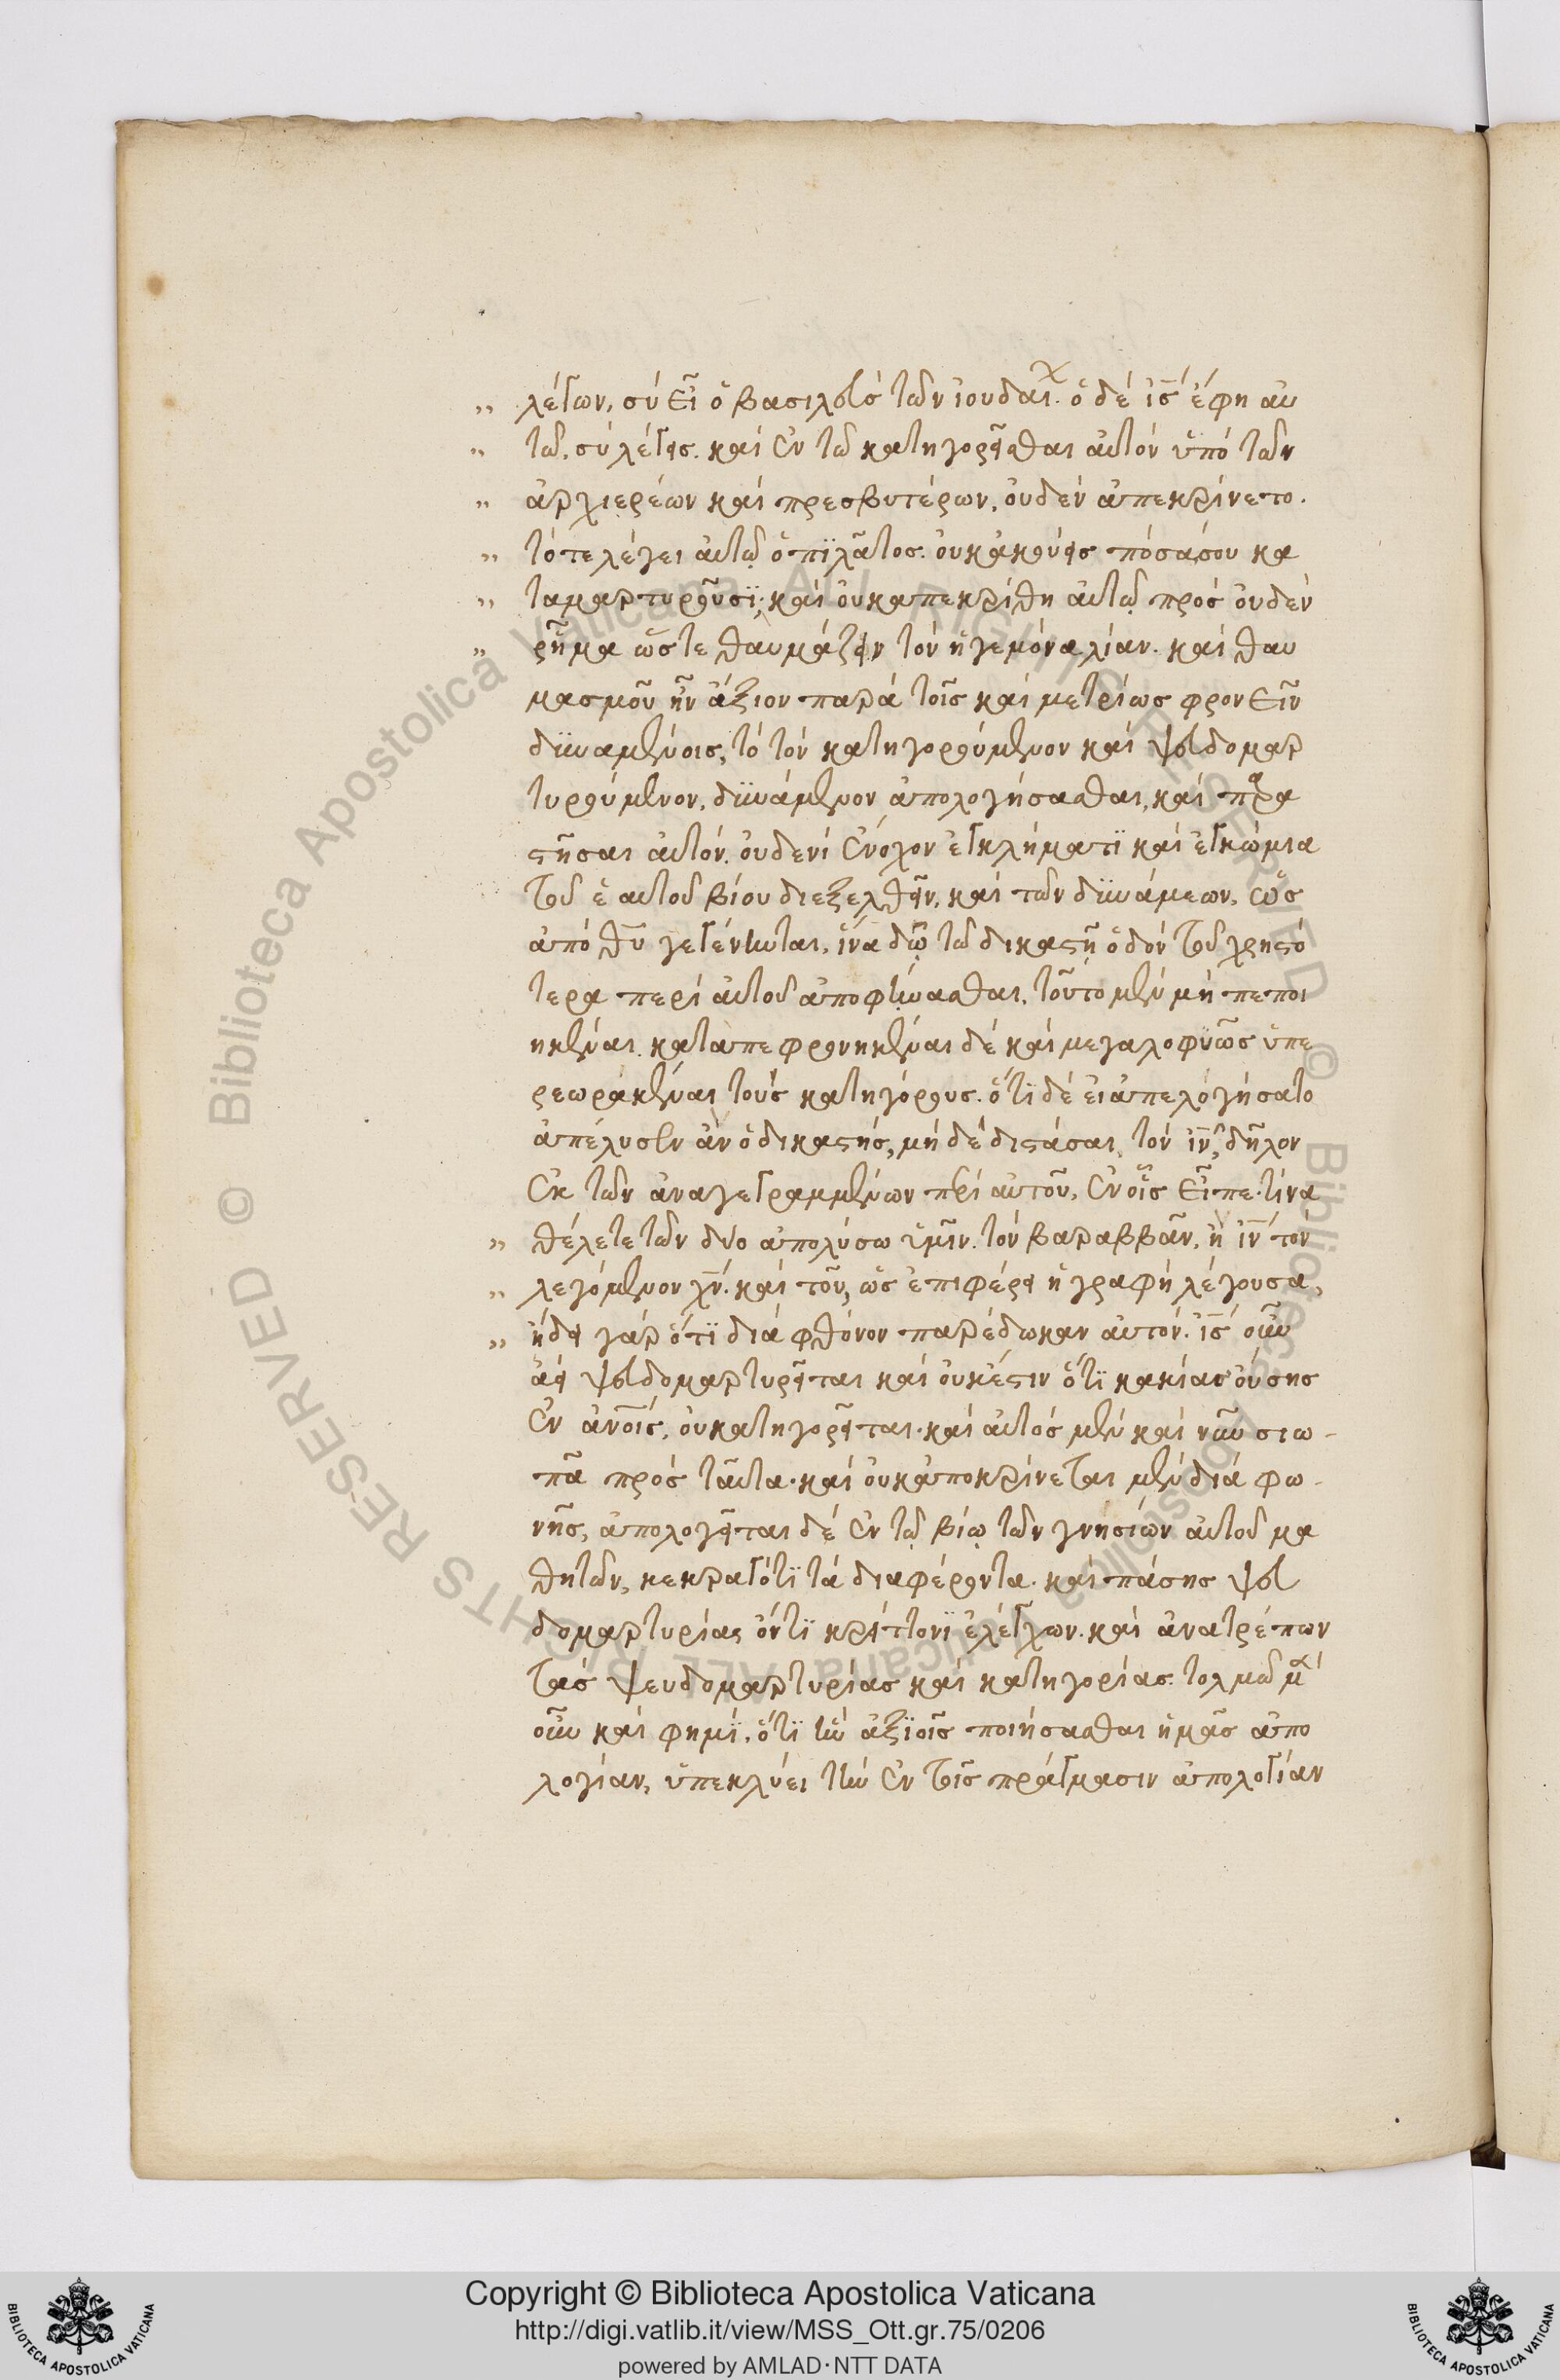 „ λέγων, σύ εἶ ὁ βασιλεύς τῶν ἰουδαί. ὁ δέ ἰς̅ ἔφη αυ
„ τῶ, σύ λέγεις. καί ἐν τῶ κατηγορεῖσθαι ἀυτόν ὑπό τῶν
„ ἀρχιερέων καί πρεσβυτέρων, ὀυδέν ἀπεκρίνετο.
„ τότε λέγει ἀυτῷ ὁ πϊλᾶτος. ὀυκ ἀκούεις πόσα σου κα
„ ταμαρτυροῦσϊ; καί ὀυκ απεκρίθη ἀυτῷ πρός ὀυδέν
„ ῥῆμα ὥστε θαυμάζειν τόν ἡγεμόνα λίαν. καί θαυ
μασμοῦ ἦν ἄξιον παρά τοῖς καί μετρίως φρονεῖν
δϋναμένοις, τό τόν κατηγορούμενον καί ψευδομαρ
τυρούμενον, δϋνάμενον ἀπολογήσασθαι, καί παρα
στῆσαι ἀυτόν. ὀυδενί ἐνόχον ἐγκλήματϊ καί ἐγκώμια
τοῦ ἑαυτοῦ βίου διεξελθεῖν, καί τῶν δϋνάμεων, ὡς
ἀπό θυ̅ γεγένηνται, ἵνα δῶ τῶ δικαστῇ ὁδόν τοῦ χρηστό
τερα περί ἀυτοῦ ἀποφήνασθαι, τοῦτο μέν μή πεποι
ηκέναι. καταπεφρονηκέναι δέ καί μεγαλοφυῶς ὑπε
ρεωρακέναι τούς κατηγόρους. ὅτϊ δέ ει ἀπελόγήσατο
ἀπέλυσεν ἄν ὁ δικαστής, μή δέ διστάσαι, τόν ἰν̅, δῆλον
ἐκ τῶν ἀναγεγραμμένων πρί ἀυτοῦ, ἐν οἷς εἶπε. τίνα
„ θέλετε τῶν δύο ἀπολύσω ὑμῖν. τόν βαραββᾶν, ἤ ἰν̅ τον
„ λεγόμενον χν̅. καί τοῦ, ὡς ἐπιφέρει ἡ γραφή λέγουσα,
„ ἤδει γάρ ὅτϊ διά φθόνον παρέδωκαν ἀυτόν. ἰς̅ οὖν
ἀεί ψευδομαρτυρεῖται καί ὀυκ ἔστιν ὅτϊ κακίας ὀύσης
ἐν ἀνοῖς, ὀυ κατηγορεῖται. καί ἀυτός μέν καί νῦν σιω-
πᾶ πρός ταῦτα. καί ὀυκ ἀποκρίνεται μέν διά φω-
νῆς, ἀπολογεῖται δέ ἐν τῷ βίῳ τῶν γνησίων ἀυτοῦ μα
θητῶν, κεκραγότϊ τά διαφέροντα. καί πάσης ψευ
δομαρτυρίας ὄντϊ κρείττονϊ ἐλέγχων. καί ἀνατρέπων
τάς ψευδομαρτυρίας καί κατηγορίας. τολμῶ μ
οὖν καί φημϊ, ὅτϊ ἥν ἀξϊοῖς ποιήσασθαι ἡμᾶς ἀπο
λογίαν, ὑπεκλύει τήν ἐν τοῖς πράγμασιν ἀπολογίαν
Copyright © Biblioteca Apostolica Vaticana
http://digi.vatlib.it/view/MSS_Ott.gr.75/0206
powered by AMLAD·NTT DATA